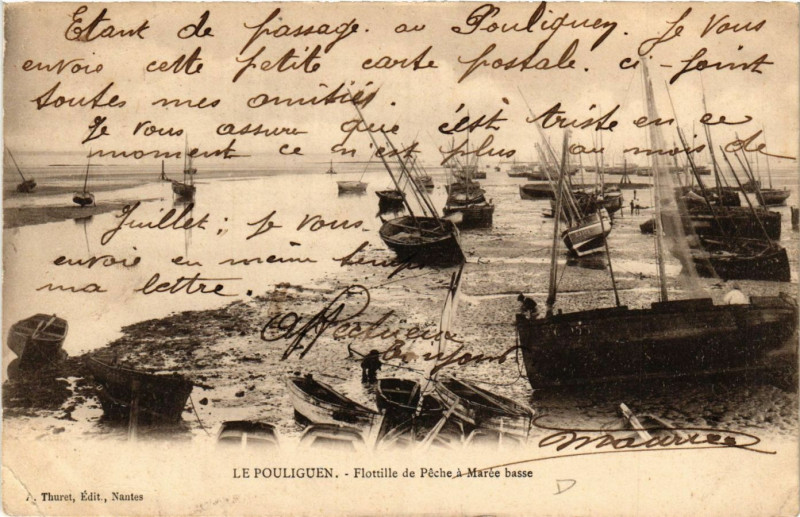 Etant de passage. au Pouliguen. Je Vous
envoie cette petite carte postale. ci-joint
toutes mes amitiés.
Je vous assure que c'est triste en ce
moment ce n'est plus au mois de
Juillet; je vous
envoie en meme temps
ma lettre.
Affectueux
Bonjour
Maurice
LE POULIGUEN. - Flottille de Pêche à Marée basse
A. Thuret, Édit., Nantes
D